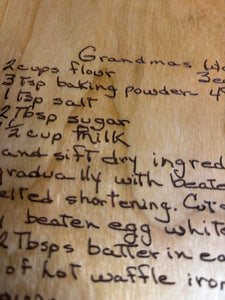 Grandmas Wa
2 cups flour 3 e
3 Tsp baking powder 4
1 tsp salt
2 Tbsp sugar
1 ½ cup milk
and sift dry ingred
gradually with beate
elted shortening. Cut
beaten egg white
2 Tbsps batter in ea
of hot waffle iron